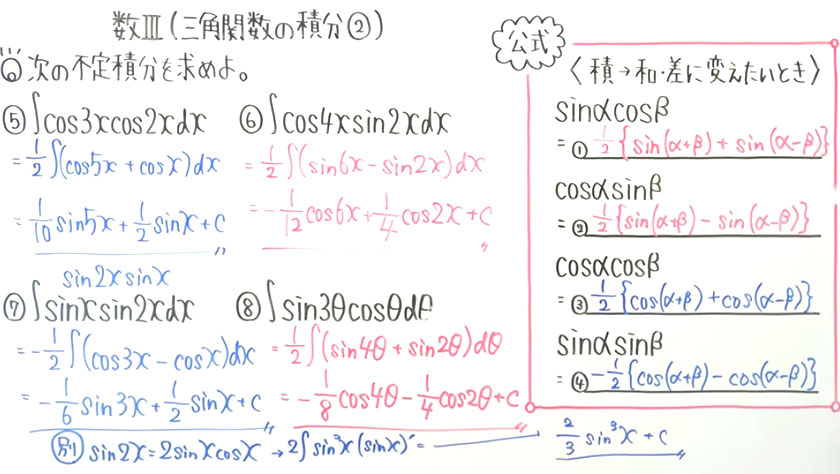 数Ⅲ(三角関数の積分②)
次の不定積分を求めよ。
⑤ ∫cos3xcos2xdx
= 1/2 ∫(cos5x + cosx)dx
= 1/10 sin5x + 1/2 sinx + C
⑥ ∫cos4xsin2xdx
= 1/2 ∫(sin6x - sin2x)dx
= -1/12 cos6x + 1/4 cos2x + C
sin2x sinx
⑦ ∫sinxsin2xdx
= -1/2 ∫(cos3x - cosx)dx
= -1/6 sin3x + 1/2 sinx + C
⑧ ∫sin3θcosθdθ
= 1/2 ∫(sin4θ + sin2θ)dθ
= -1/8 cos4θ - 1/4 cos2θ + C
別 sin2x = 2sinxcosx → 2∫sin²x(sinx)' = 2/3 sin³x + C
公式
〈積→和・差に変えたいとき〉
sinαcosβ
= ① 1/2 {sin(α+β) + sin(α-β)}
cosαsinβ
= ② 1/2 {sin(α+β) - sin(α-β)}
cosαcosβ
= ③ 1/2 {cos(α+β) + cos(α-β)}
sinαsinβ
= ④ -1/2 {cos(α+β) - cos(α-β)}